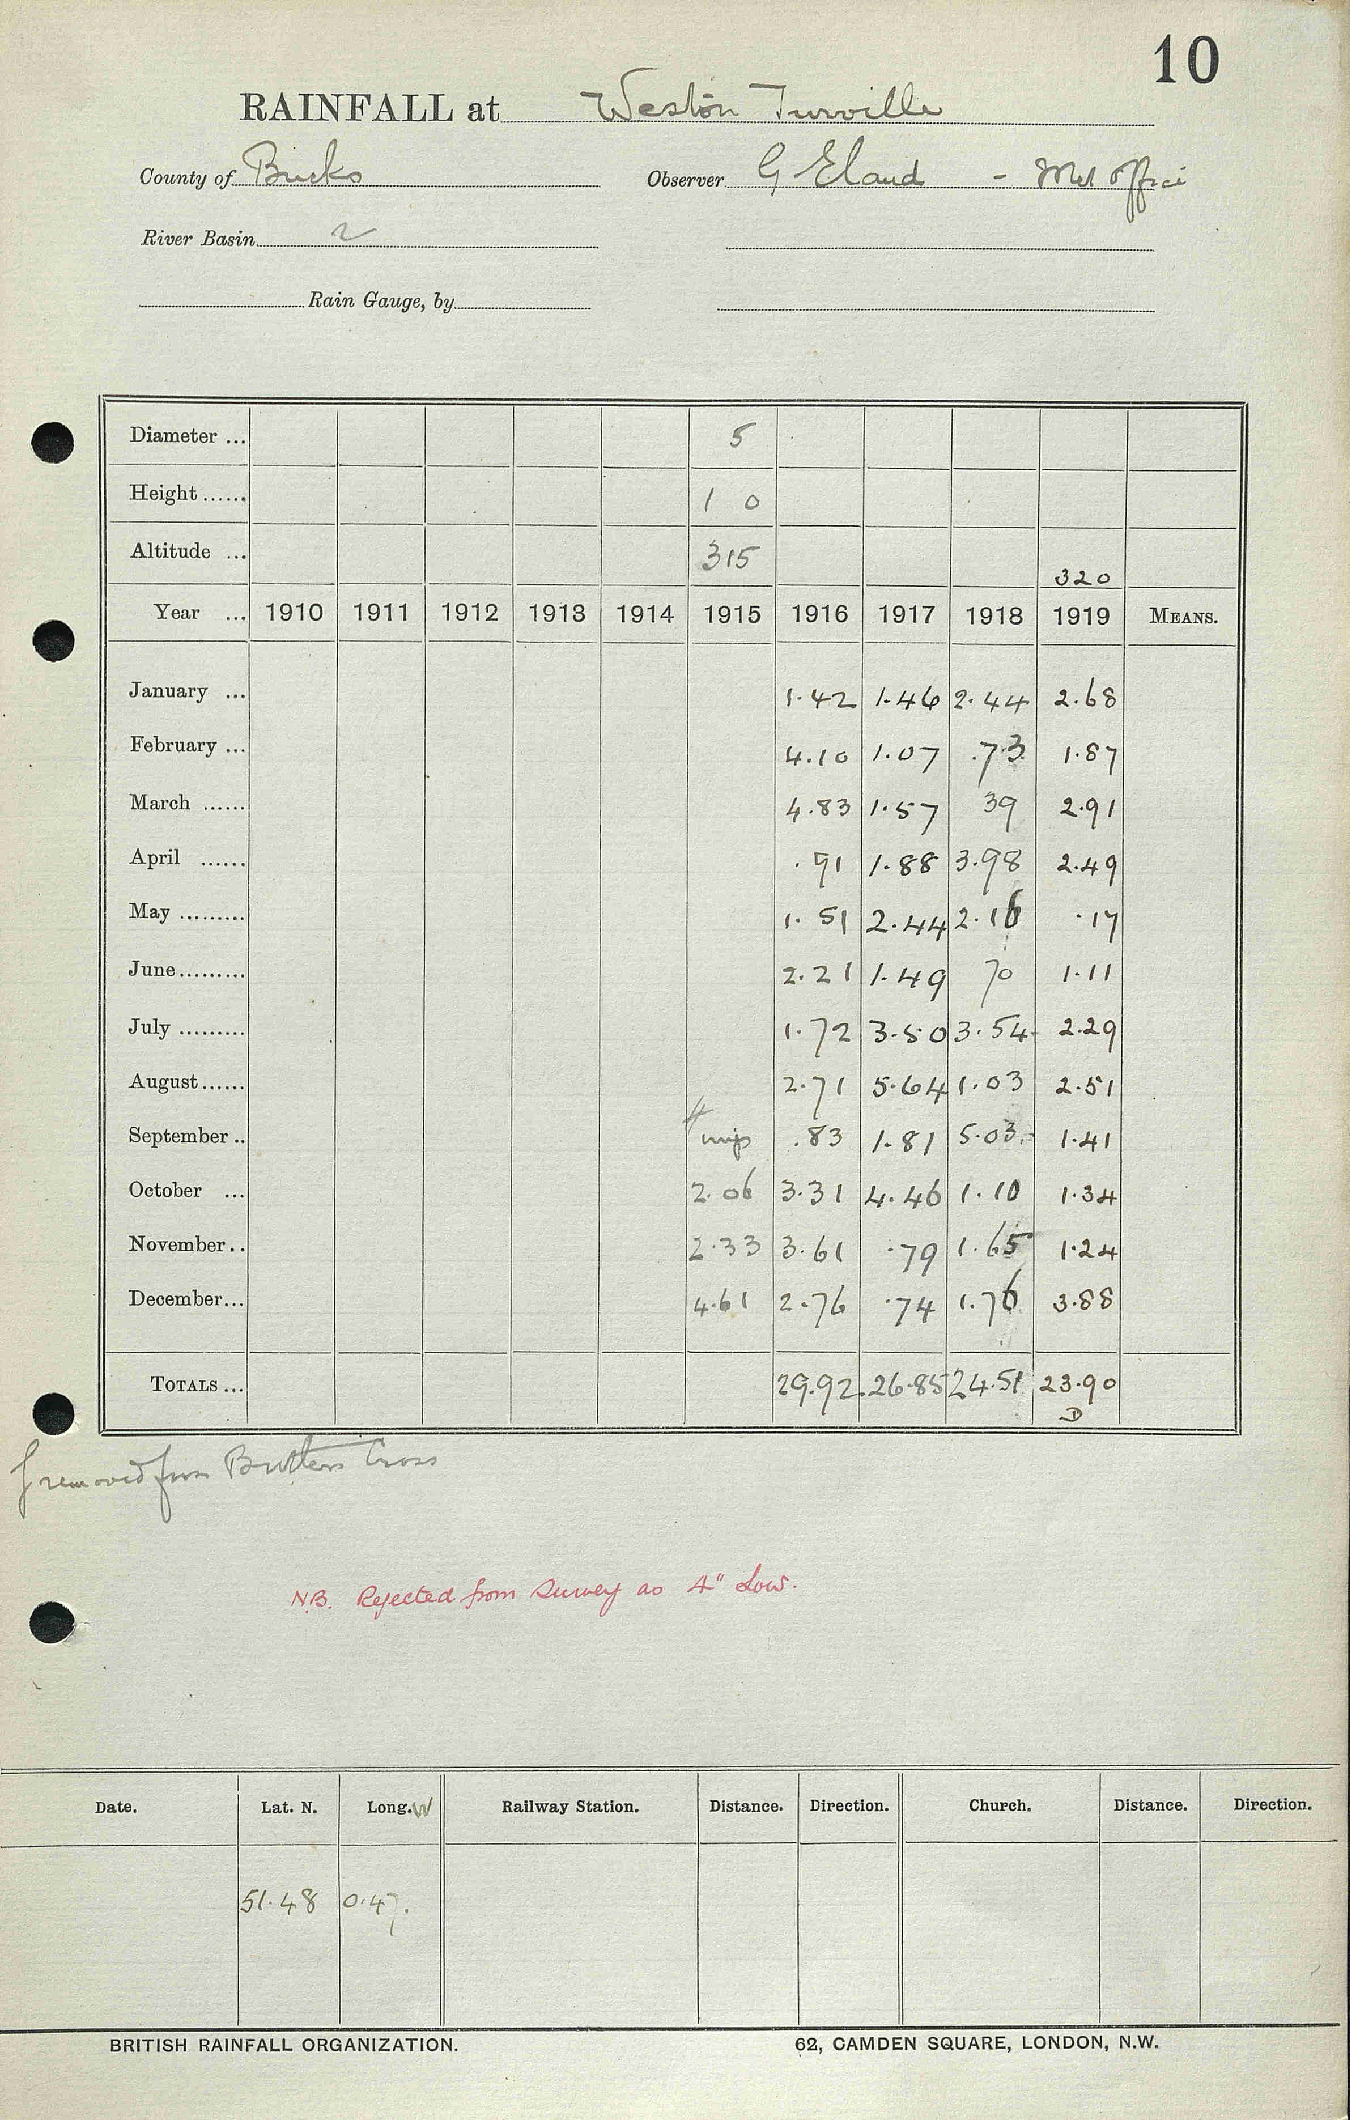 10
RAINFALL at Weston Turville
County of Bucks Observer G Eland - Met Office
River Basin 2
Rain Gauge, by
Diameter ... 5
Height ...... 1 0
Altitude ... 315 320
Year ... 1910 1911 1912 1913 1914 1915 1916 1917 1918 1919 MEANS.
January ... 1.42 1.46 2.44 2.68
February ... 4.10 1.07 .73 1.87
March ...... 4.83 1.57 39 2.91
April ...... .91 1.88 3.98 2.49
May ......... 1.51 2.44 2.16 .17
June......... 2.21 1.49 70 1.11
July ......... 1.72 3.50 3.54 2.29
August...... 2.71 5.64 1.03 2.51
September .. .83 1.81 5.03 1.41
October ... 2.06 3.31 4.46 1.10 1.34
November.. 2.33 3.61 .79 1.65 1.24
December... 4.61 2.76 .74 1.76 3.88
TOTALS ... 29.92 26.85 24.51 23.90
D
removed from Butlers Cross
N.B. Rejected from Survey as 4" Low.
Date. Lat. N. Long. W Railway Station. Distance. Direction. Church. Distance. Direction.
51.48 0.47.
BRITISH RAINFALL ORGANIZATION. 62, CAMDEN SQUARE, LONDON, N.W.